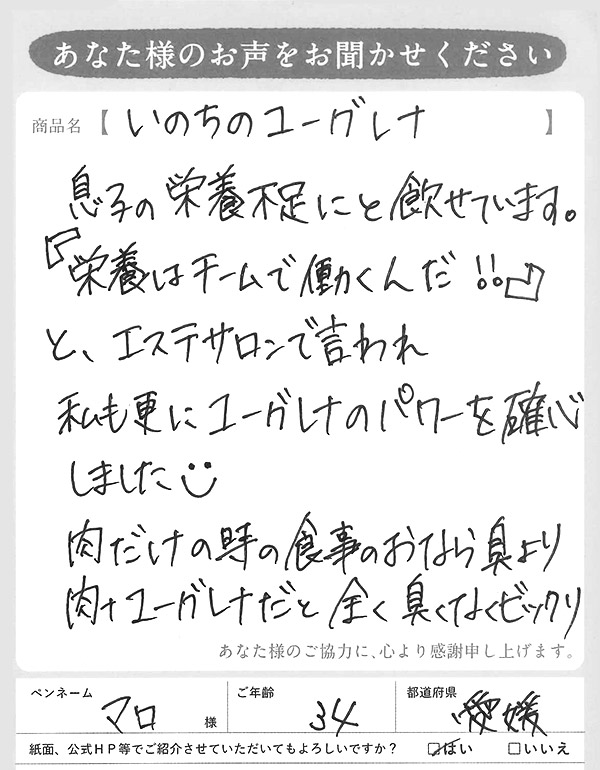 あなた様のお声をお聞かせください
商品名【 いのちのユーグレナ 】
息子の栄養不足にと飲せています。
『栄養はチームで働くんだ!!』
と、エステサロンで言われ
私も更にユーグレナのパワーを確心
しました
肉だけの時の食事のおなら臭より
肉+ユーグレナだと全く臭くなくビックリ
あなた様のご協力に、心より感謝申し上げます。
ペンネーム マロ 様 ご年齢 34 都道府県 愛媛
紙面、公式HP等でご紹介させていただいてもよろしいですか? ☑はい □いいえ